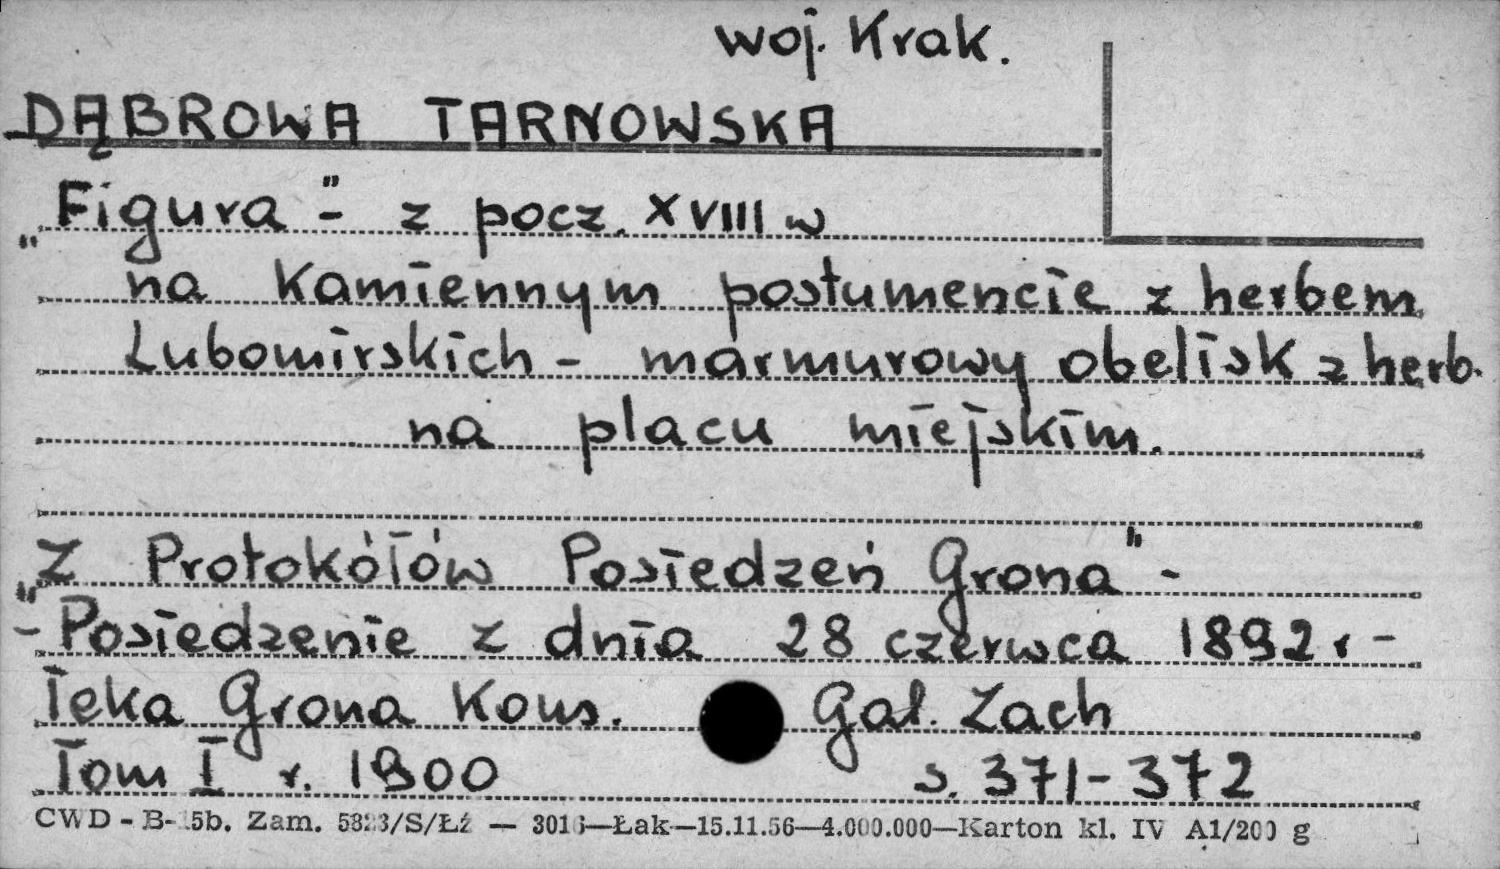 woj. Krak.
DĄBROWA TARNOWSKA
„Figura" - z pocz. XVIII w
na kamiennym postumencie z herbem
Lubomirskich - marmurowy obelisk z herb.
na placu miejskim.
„Z Protokółów Posiedzeń Grona" -
- Posiedzenie z dnia 28 czerwca 1892 r -
Teka Grona Kons. Gal. Zach
Tom I r. 1900 s. 371-372
CWD - B- 5b. Zam. /S/Łź — —Łak—15.11.56—4.000.000—Karton kl. IV A1/200 g